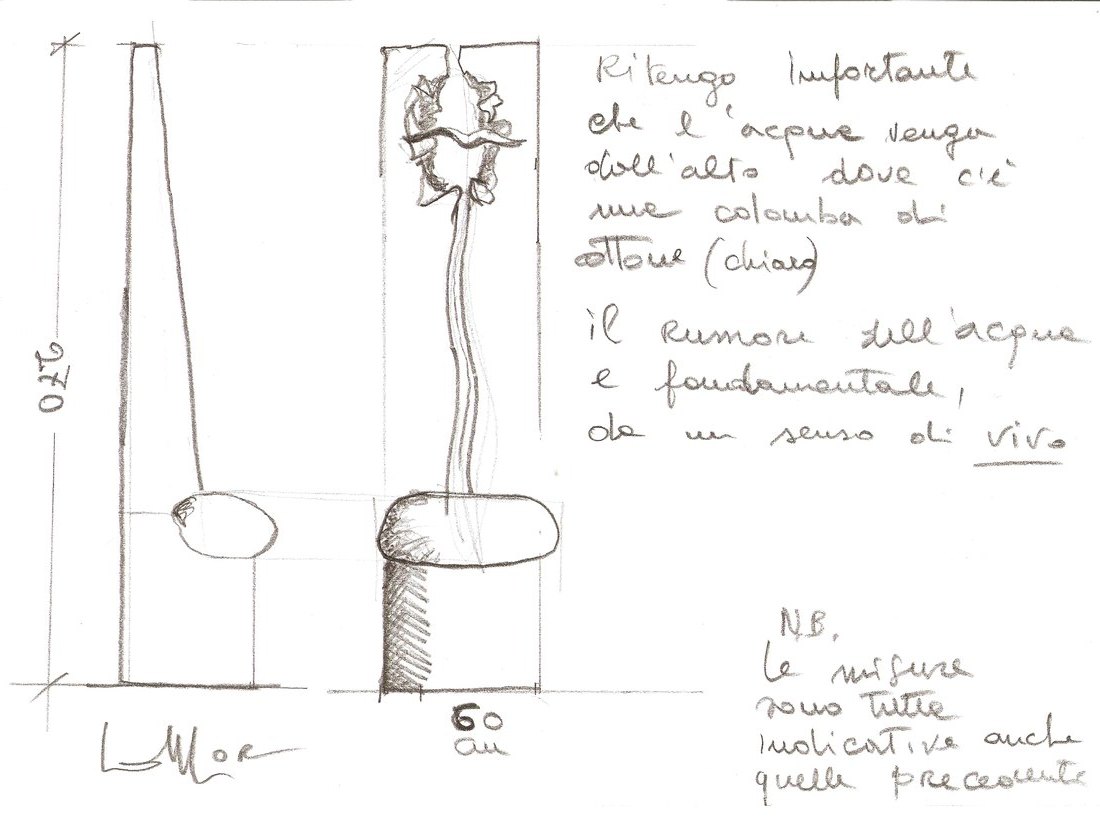 Ritengo importante
che l'acqua venga
dall'alto dove c'è
una colomba di
ottone (chiaro)
il rumore dell'acqua
e fondamentale,
da un senso di vivo
270
60
cm
N.B.
Le misure
sono tutte
indicative anche
quelle precedente